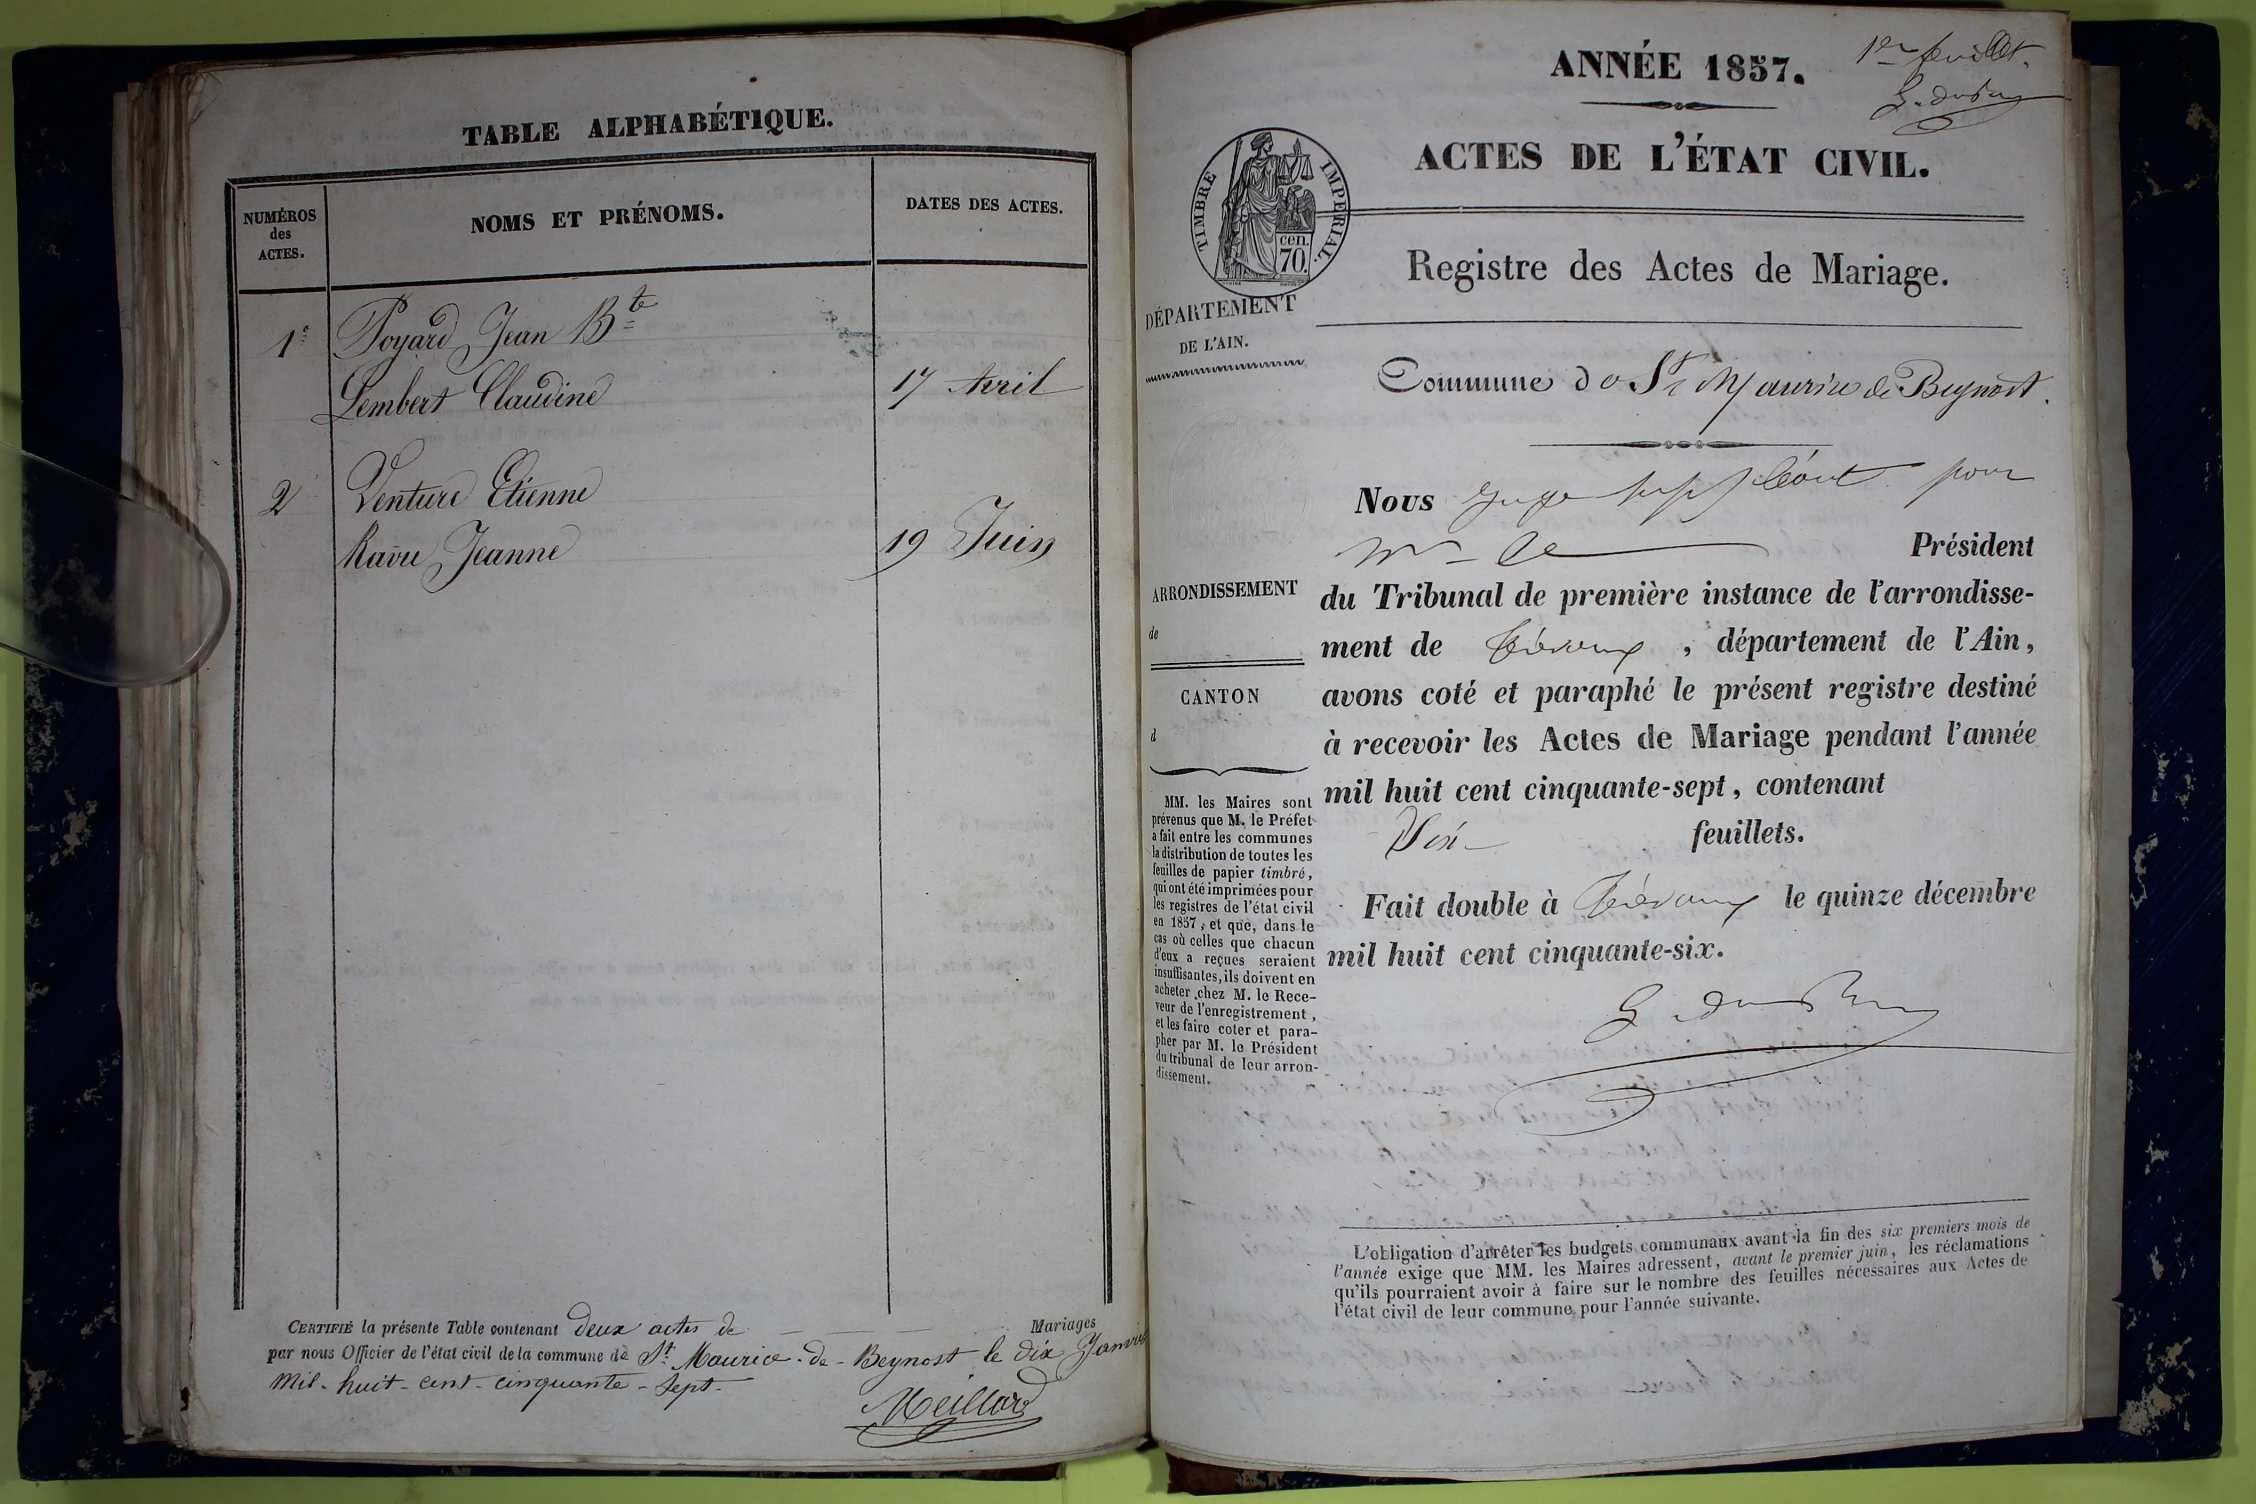 TABLE ALPHABÉTIQUE.
NUMÉROS
des
ACTES.
NOMS ET PRÉNOMS.
DATES DES ACTES.
1º Poyard Jean Bte
Lembert Claudine 17 Avril
2 Venture Etienne
Ravu Jeanne 19 Juin
CERTIFIÉ la présente Table contenant deux actes de Mariages
par nous Officier de l'état civil de la commune de St Maurice-de-Beynost le dix Janvier
mil-huit-cent-cinquante-sept-
Meillard
1er feuillet.
ANNÉE 1857.
ACTES DE L'ÉTAT CIVIL.
TIMBRE IMPÉRIAL.
cen.
70.
Registre des Actes de Mariage.
DÉPARTEMENT
DE L'AIN.
Commune de St Maurice de Beynost.
Nous juge suppléant pour
Mr le Président
du Tribunal de première instance de l'arrondisse-
ment de Trévoux, département de l'Ain,
avons coté et paraphé le présent registre destiné
à recevoir les Actes de Mariage pendant l'année
mil huit cent cinquante-sept, contenant
feuillets.
Fait double à Trévoux le quinze décembre
mil huit cent cinquante-six.
ARRONDISSEMENT
de
CANTON
d
MM. les Maires sont
prévenus que M. le Préfet
a fait entre les communes
la distribution de toutes les
feuilles de papier timbré,
qui ont été imprimées pour
les registres de l'état civil
en 1857, et que, dans le
cas où celles que chacun
d'eux a reçues seraient
insuffisantes, ils doivent en
acheter chez M. le Rece-
veur de l'enregistrement,
et les faire coter et para-
pher par M. le Président
du tribunal de leur arron-
dissement.
L'obligation d'arrêter les budgets communaux avant la fin des six premiers mois de
l'année exige que MM. les Maires adressent, avant le premier juin, les réclamations
qu'ils pourraient avoir à faire sur le nombre des feuilles nécessaires aux Actes de
l'état civil de leur commune pour l'année suivante.